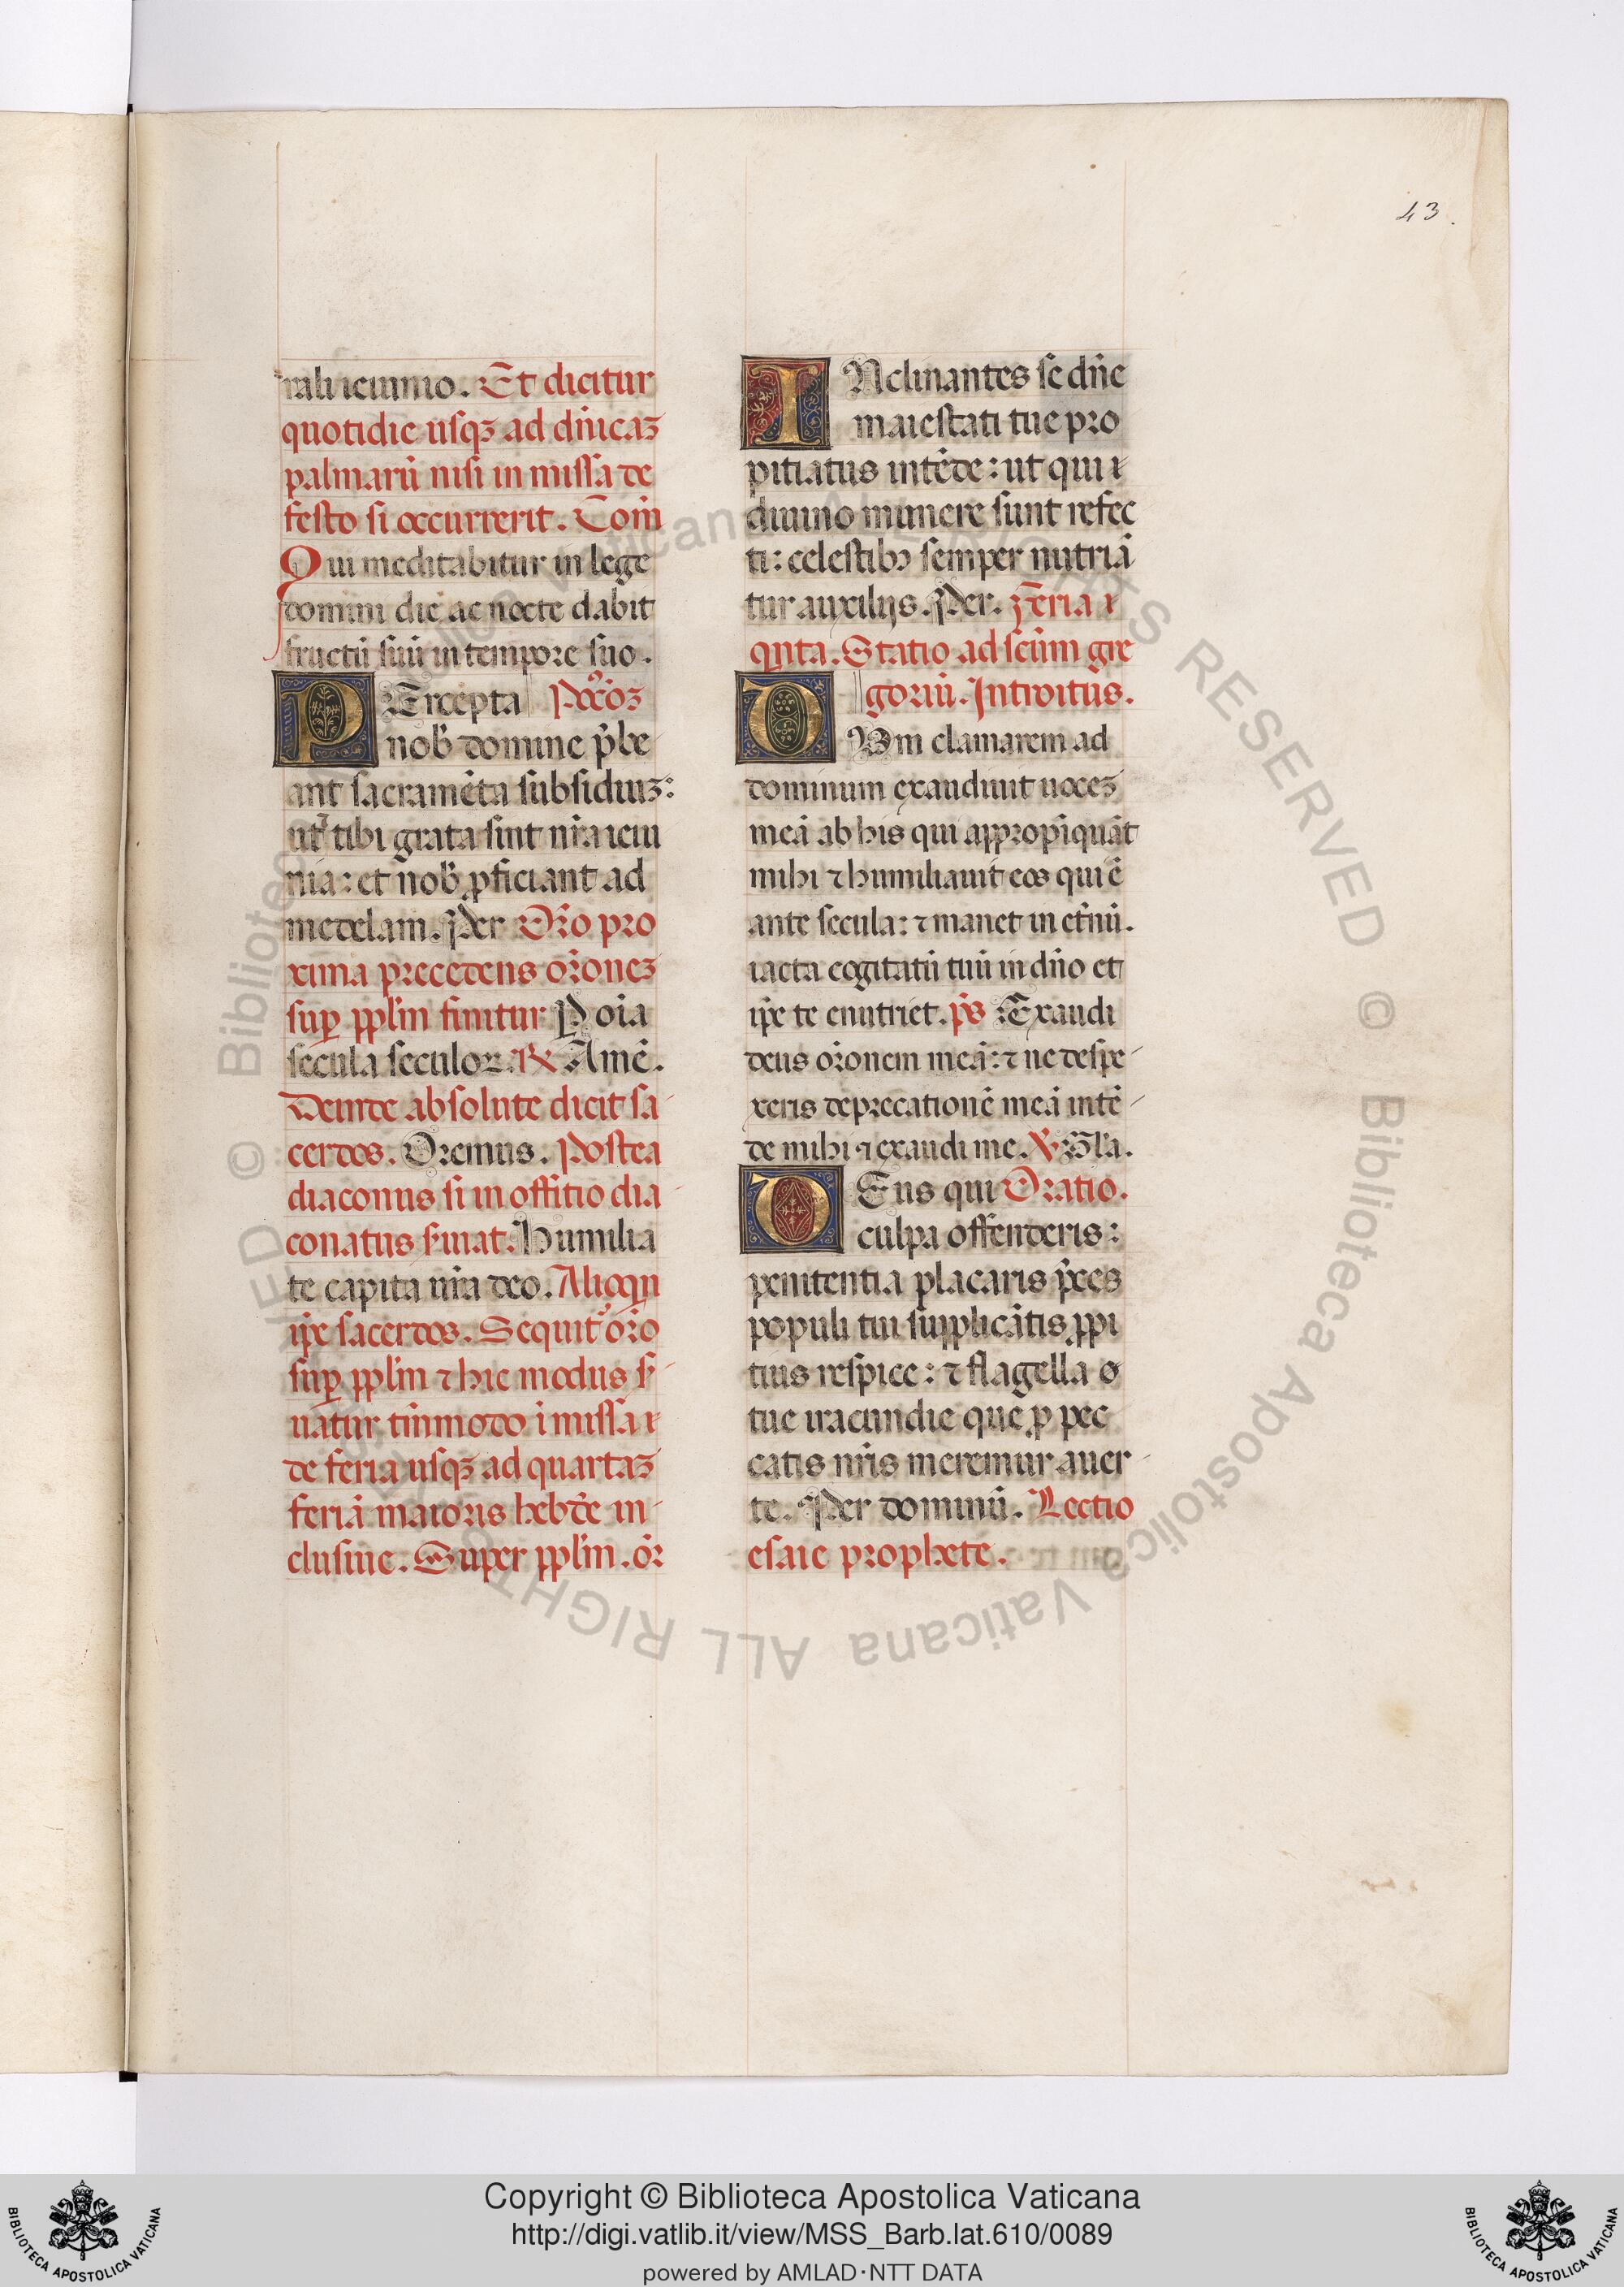 43.
rali ieiunio. Et dicitur
quotidie usqꝫ ad dn̄icaꝫ
palmarū nisi in missa de
festo si occurrerit. Com̄
Qui meditabitur in lege
domini die ac nocte dabit
fructū suū in tempore suo.
PErcepta Pꝰcōꝫ
nob̄ domine p̄be
ant sacramēta subsidiuꝫ:
ut tibi grata sint nr̄a ieiu
nia: et nob̄ ꝓficiant ad
medelam. Per Or̄o pro
xima precedens or̄oneꝫ
suꝑ ppl̄m finitur P oīa
secula seculoꝝ. ℟ Amē.
Deinde absolute dicit sa
cerdos. Oremus. Postea
diaconus si in offitio dia
conatus s̄uiat. Humilia
te capita nr̄a deo. Alioqn
ip̄e sacerdos. Sequitᷣ or̄o
suꝑ ppl̄m ⁊ hic modus s̄
uatur tm̄modo ī missa
de feria usqꝫ ad quartaꝫ
feriā maioris hebd̄e in
clusiue. Super ppl̄m. or̄
INclinantes se dn̄e
maiestati tue pro
pitiatus intēde: ut qui
diuino munere sunt refec
ti: celestibꝰ semper nutriā
tur auxilijs. Per. Feria
qnta. Statio ad scūm gre
goriū. Introitus.
DUm clamarem ad
dominum exaudiuit uoceꝫ
meā ab his qui appropīquāt
mihi ⁊ humiliauit eos qui ē
ante secula: ⁊ manet in et̄nū.
iacta cogitatū tuū in dn̄o et
ip̄e te enutriet. ps̄ Exaudi
deus or̄onem meā: ⁊ ne despe
xeris deprecationē meā intē
de mihi ⁊ exaudi me. ℣. Gl̄a.
DEus qui Oratio.
culpa offenderis:
penitentia placaris p̄ces
populi tui supplicātis ꝓpi
tius respice: ⁊ flagella
tue iracundie que ꝓ pec
catis nr̄is meremur auer
te. Per dominū. Lectio
esaie prophete.
Copyright © Biblioteca Apostolica Vaticana
http://digi.vatlib.it/view/MSS_Barb.lat.610/0089
powered by AMLAD·NTT DATA
BIBLIOTECA APOSTOLICA VATICANA
BIBLIOTECA APOSTOLICA VATICANA
© Biblioteca Apostolica Vaticana ALL RIGHTS RESERVED
© Biblioteca Apostolica Vaticana ALL RIGHTS RESERVED